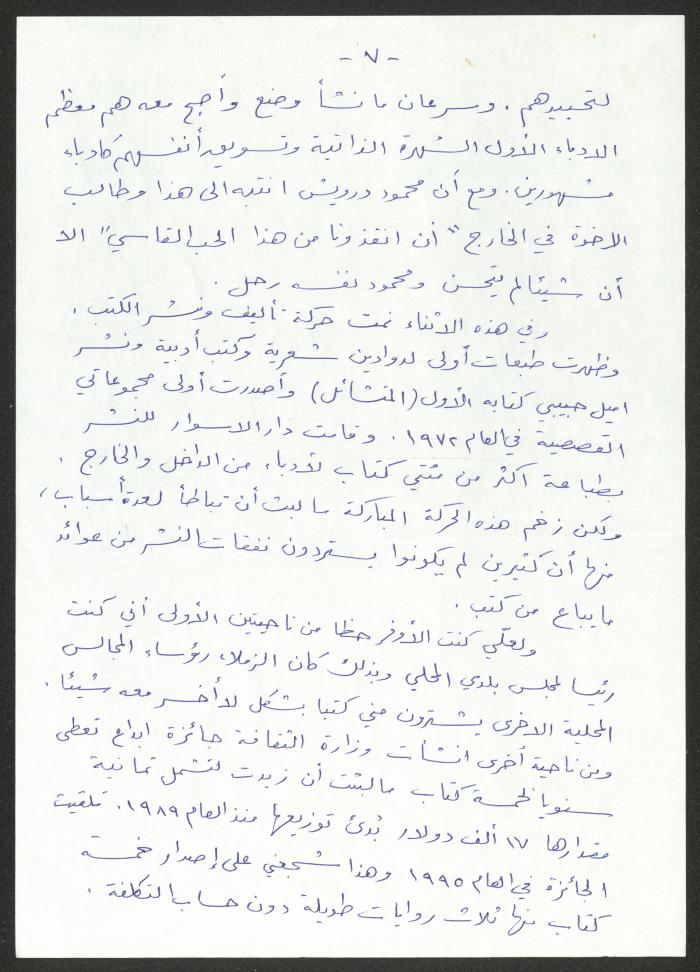 - ٧ -
لتحسيدهم. وسرعان ما نشأ وضع وأصبح معه هم معظم
الادباء الأول الشهرة الذاتية وتسويق أنفسهم كأدباء
مشهورين. ومع أن محمود درويش انتبه الى هذا وطالب
الاخوة في الخارج "أن انقذونا من هذا الحب القاسي" الا
أن شيئا لم يتحسن ومحمود نفسه رحل.
وفي هذه الاثناء نمت حركة تأليف ونشر الكتب.
وظهرت طبعات أولى لدواوين شعرية وكتب أدبية ونشر
اميل حبيبي كتابه الأول (المتشائل) وأصدرت أولى مجموعاتي
القصصية في العام ١٩٧٢. وقامت دار الاسوار للنشر
بطباعة اكثر من مئتي كتاب لأدباء من الداخل والخارج.
ولكن زخم هذه الحركة المباركة ما لبث أن تباطأ لعدة أسباب،
منها أن كثيرين لم يكونوا يستردون نفقات النشر من عوائد
ما يباع من كتب.
ولعلّي كنت الأوفر حظا من ناحيتين الأولى أني كنت
رئيسا لمجلس بلدي المحلي وبذلك كان الزملاء رؤساء المجالس
المحلية الاخرى يشترون مني كتبا بشكل لا أخسر معه شيئا.
ومن ناحية أخرى انشأت وزارة الثقافة جائزة ابداع تعطى
سنويا لخمسة كتاب ما لبثت أن زيدت لتشمل ثمانية
مقدارها ١٧ ألف دولار بُدئ توزيعها منذ العام ١٩٨٩. تلقيت
الجائزة في العام ١٩٩٥ وهذا شجعني على إصدار خمسة
كتاب منها ثلاث روايات طويلة دون حساب التكلفة.